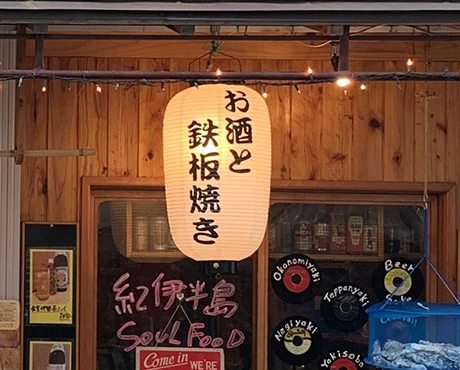 お酒と
鉄板焼き
紀伊半島
SOUL FOOD
Come in WE'RE
Okonomiyaki
Teppanyaki
Beer
Negiyaki
Yakisoba